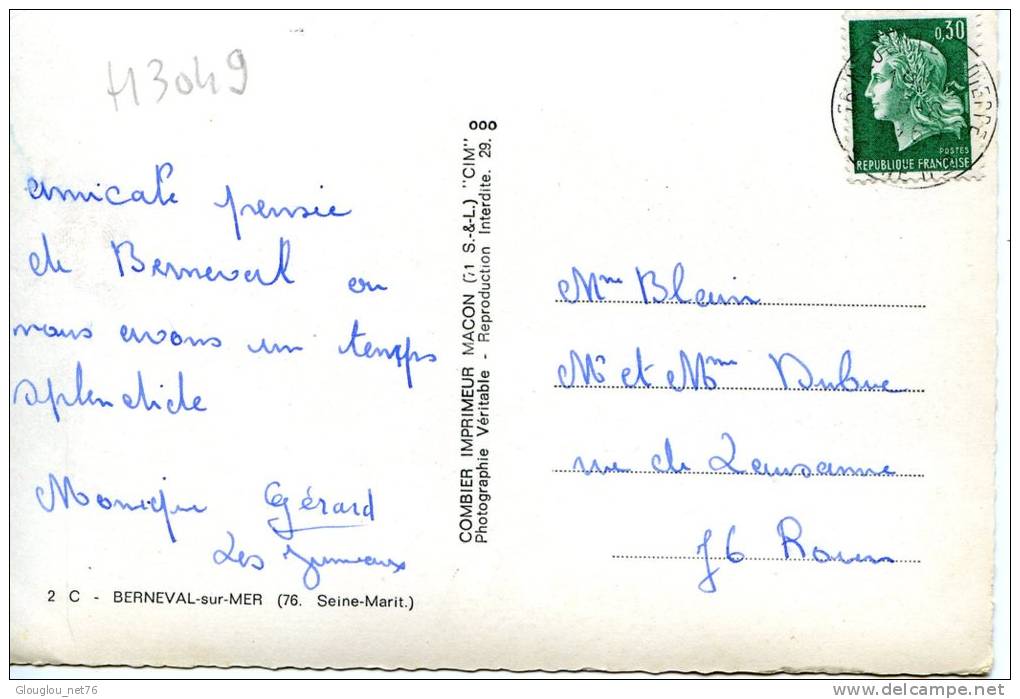 H3049
amicale pensée
de Berneval où
nous avons un temps
splendide
Monique Gérard
Les Jumeaux
2 C - BERNEVAL-sur-MER (76. Seine-Marit.)
ooo
COMBIER IMPRIMEUR MACON (71 S.-&-L.) "CIM"
Photographie Véritable - Reproduction Interdite. 29.
0,30
POSTES
REPUBLIQUE FRANÇAISE
DIEPPE
Mme Blain
Mr et Mme Dubuc
rue de Lausanne
76 Rouen
Glouglou_net76
delcampe.net